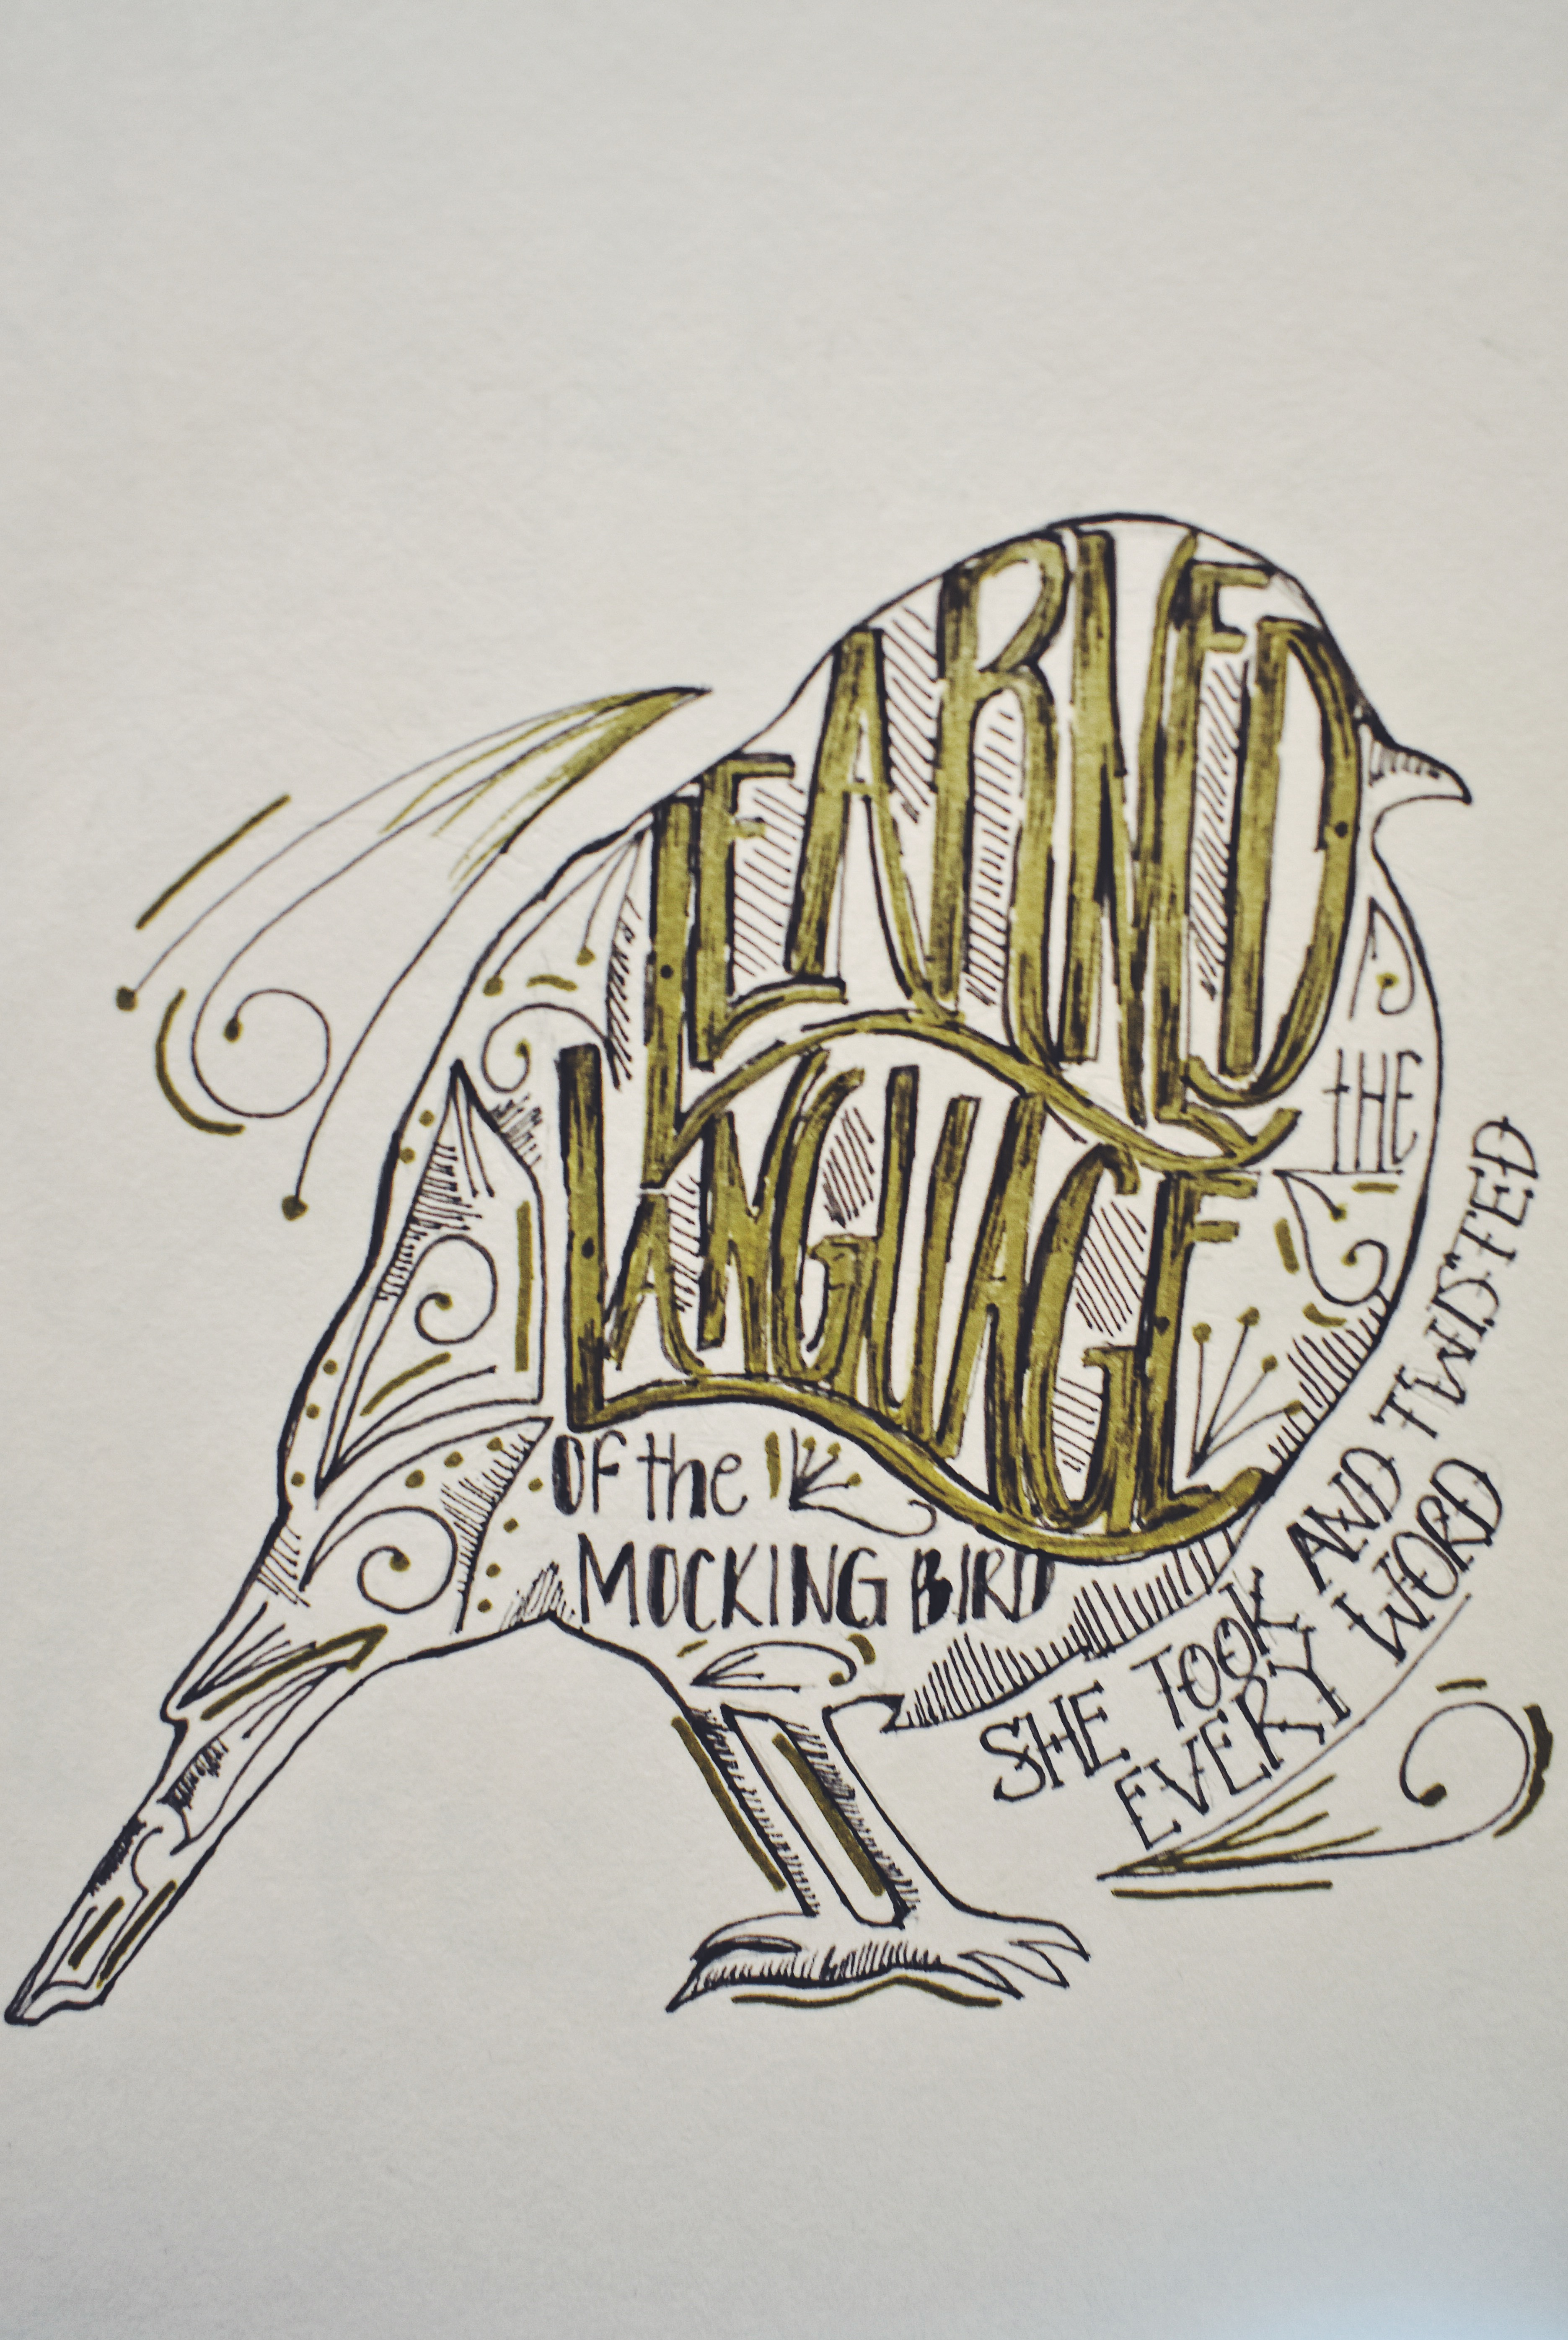 LEARNED
THE
LANGUAGE
OF the
MOCKING BIRD
SHE TOOK AND TWISTED
EVERY WORD